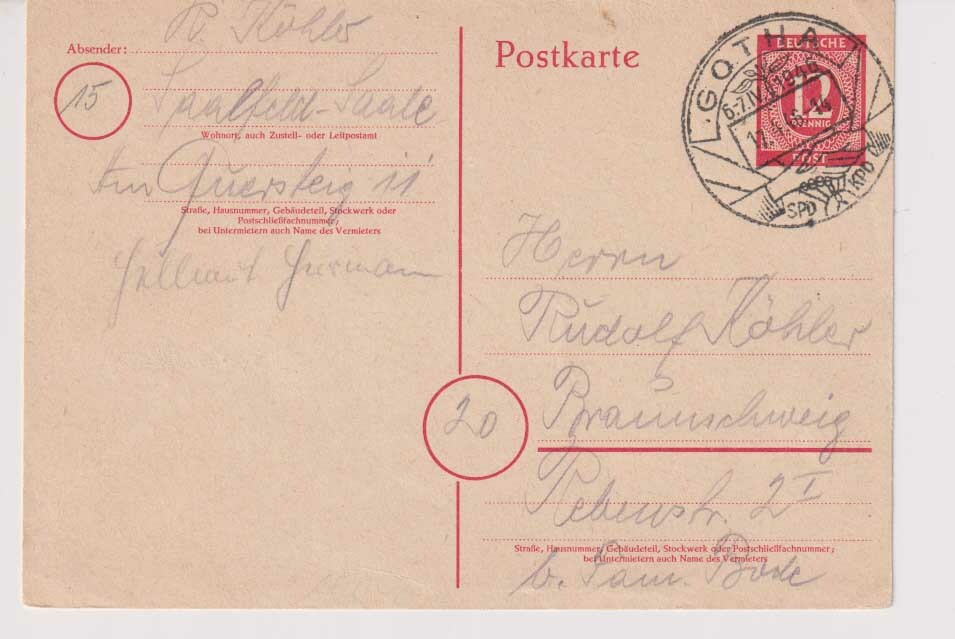 R. Köhler
Absender:
15
Saalfeld-Saale
Wohnort, auch Zustell- oder Leitpostamt
Am Quersteig 11
Straße, Hausnummer, Gebäudeteil, Stockwerk oder
Postschließfachnummer;
bei Untermietern auch Name des Vermieters
Postkarte
DEUTSCHE
12
PFENNIG
POST
GOTHA
SPD
KPD
Herrn
Rudolf Köhler
20
Braunschweig
Rebenstr. 2 I
Straße, Hausnummer, Gebäudeteil, Stockwerk oder Postschließfachnummer;
bei Untermietern auch Name des Vermieters
b. Fam. Bode